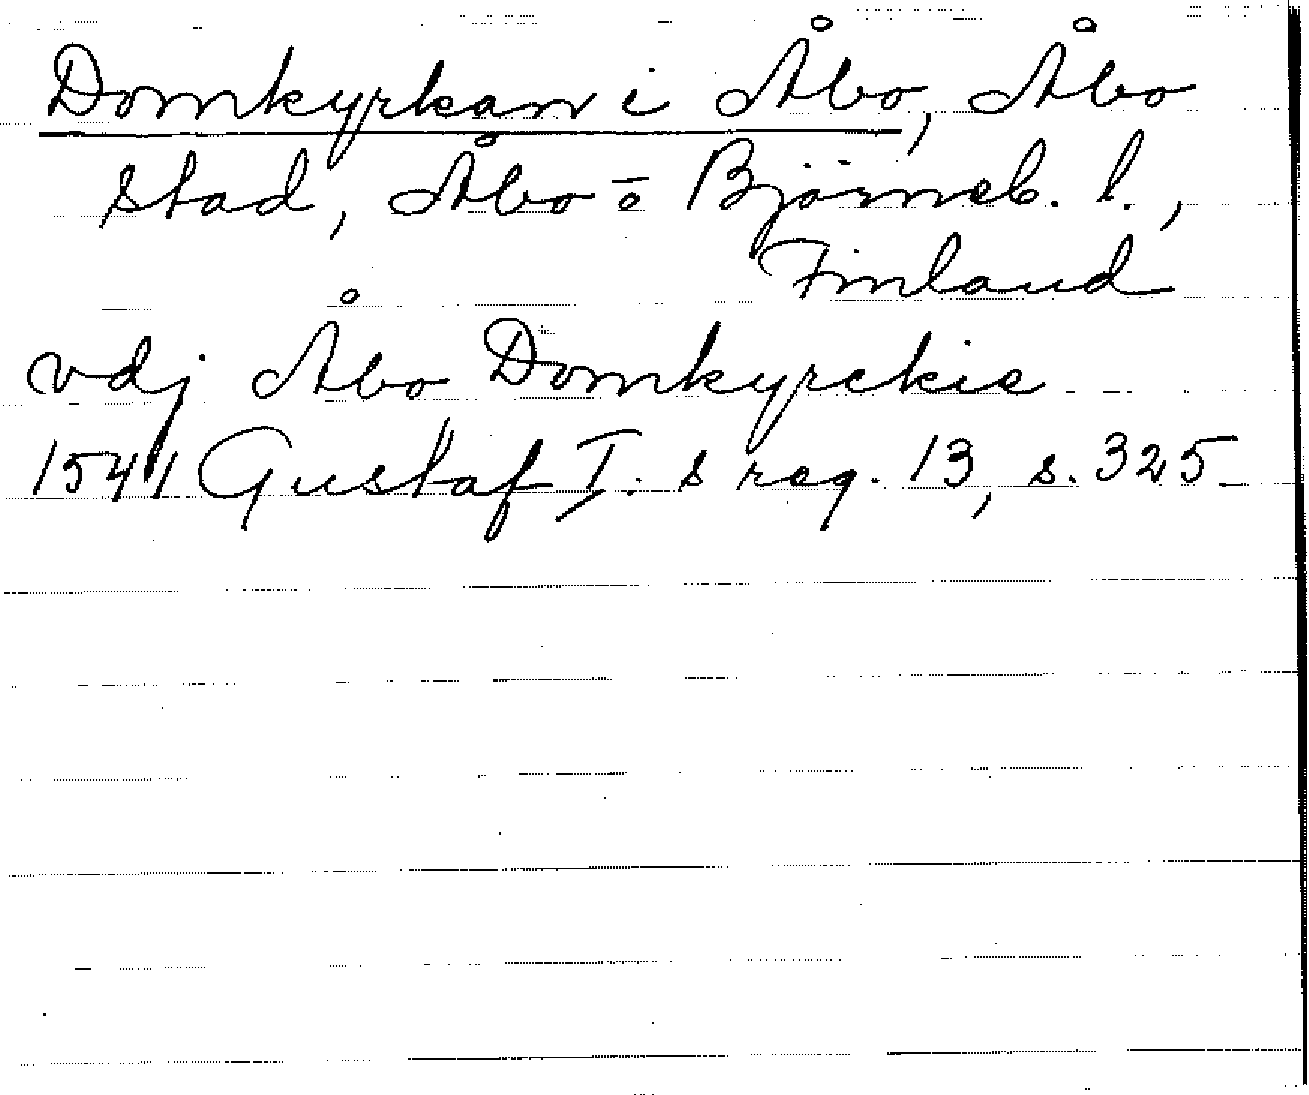 Domkyrkan i Åbo, Åbo
stad, Åbo- o Björneb. l.,
Finland
vdj Åbo Domkyrckie
1541 Gustaf I. s reg. 13, s. 325